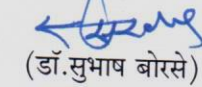 (डॉ.सुभाष बोरसे)